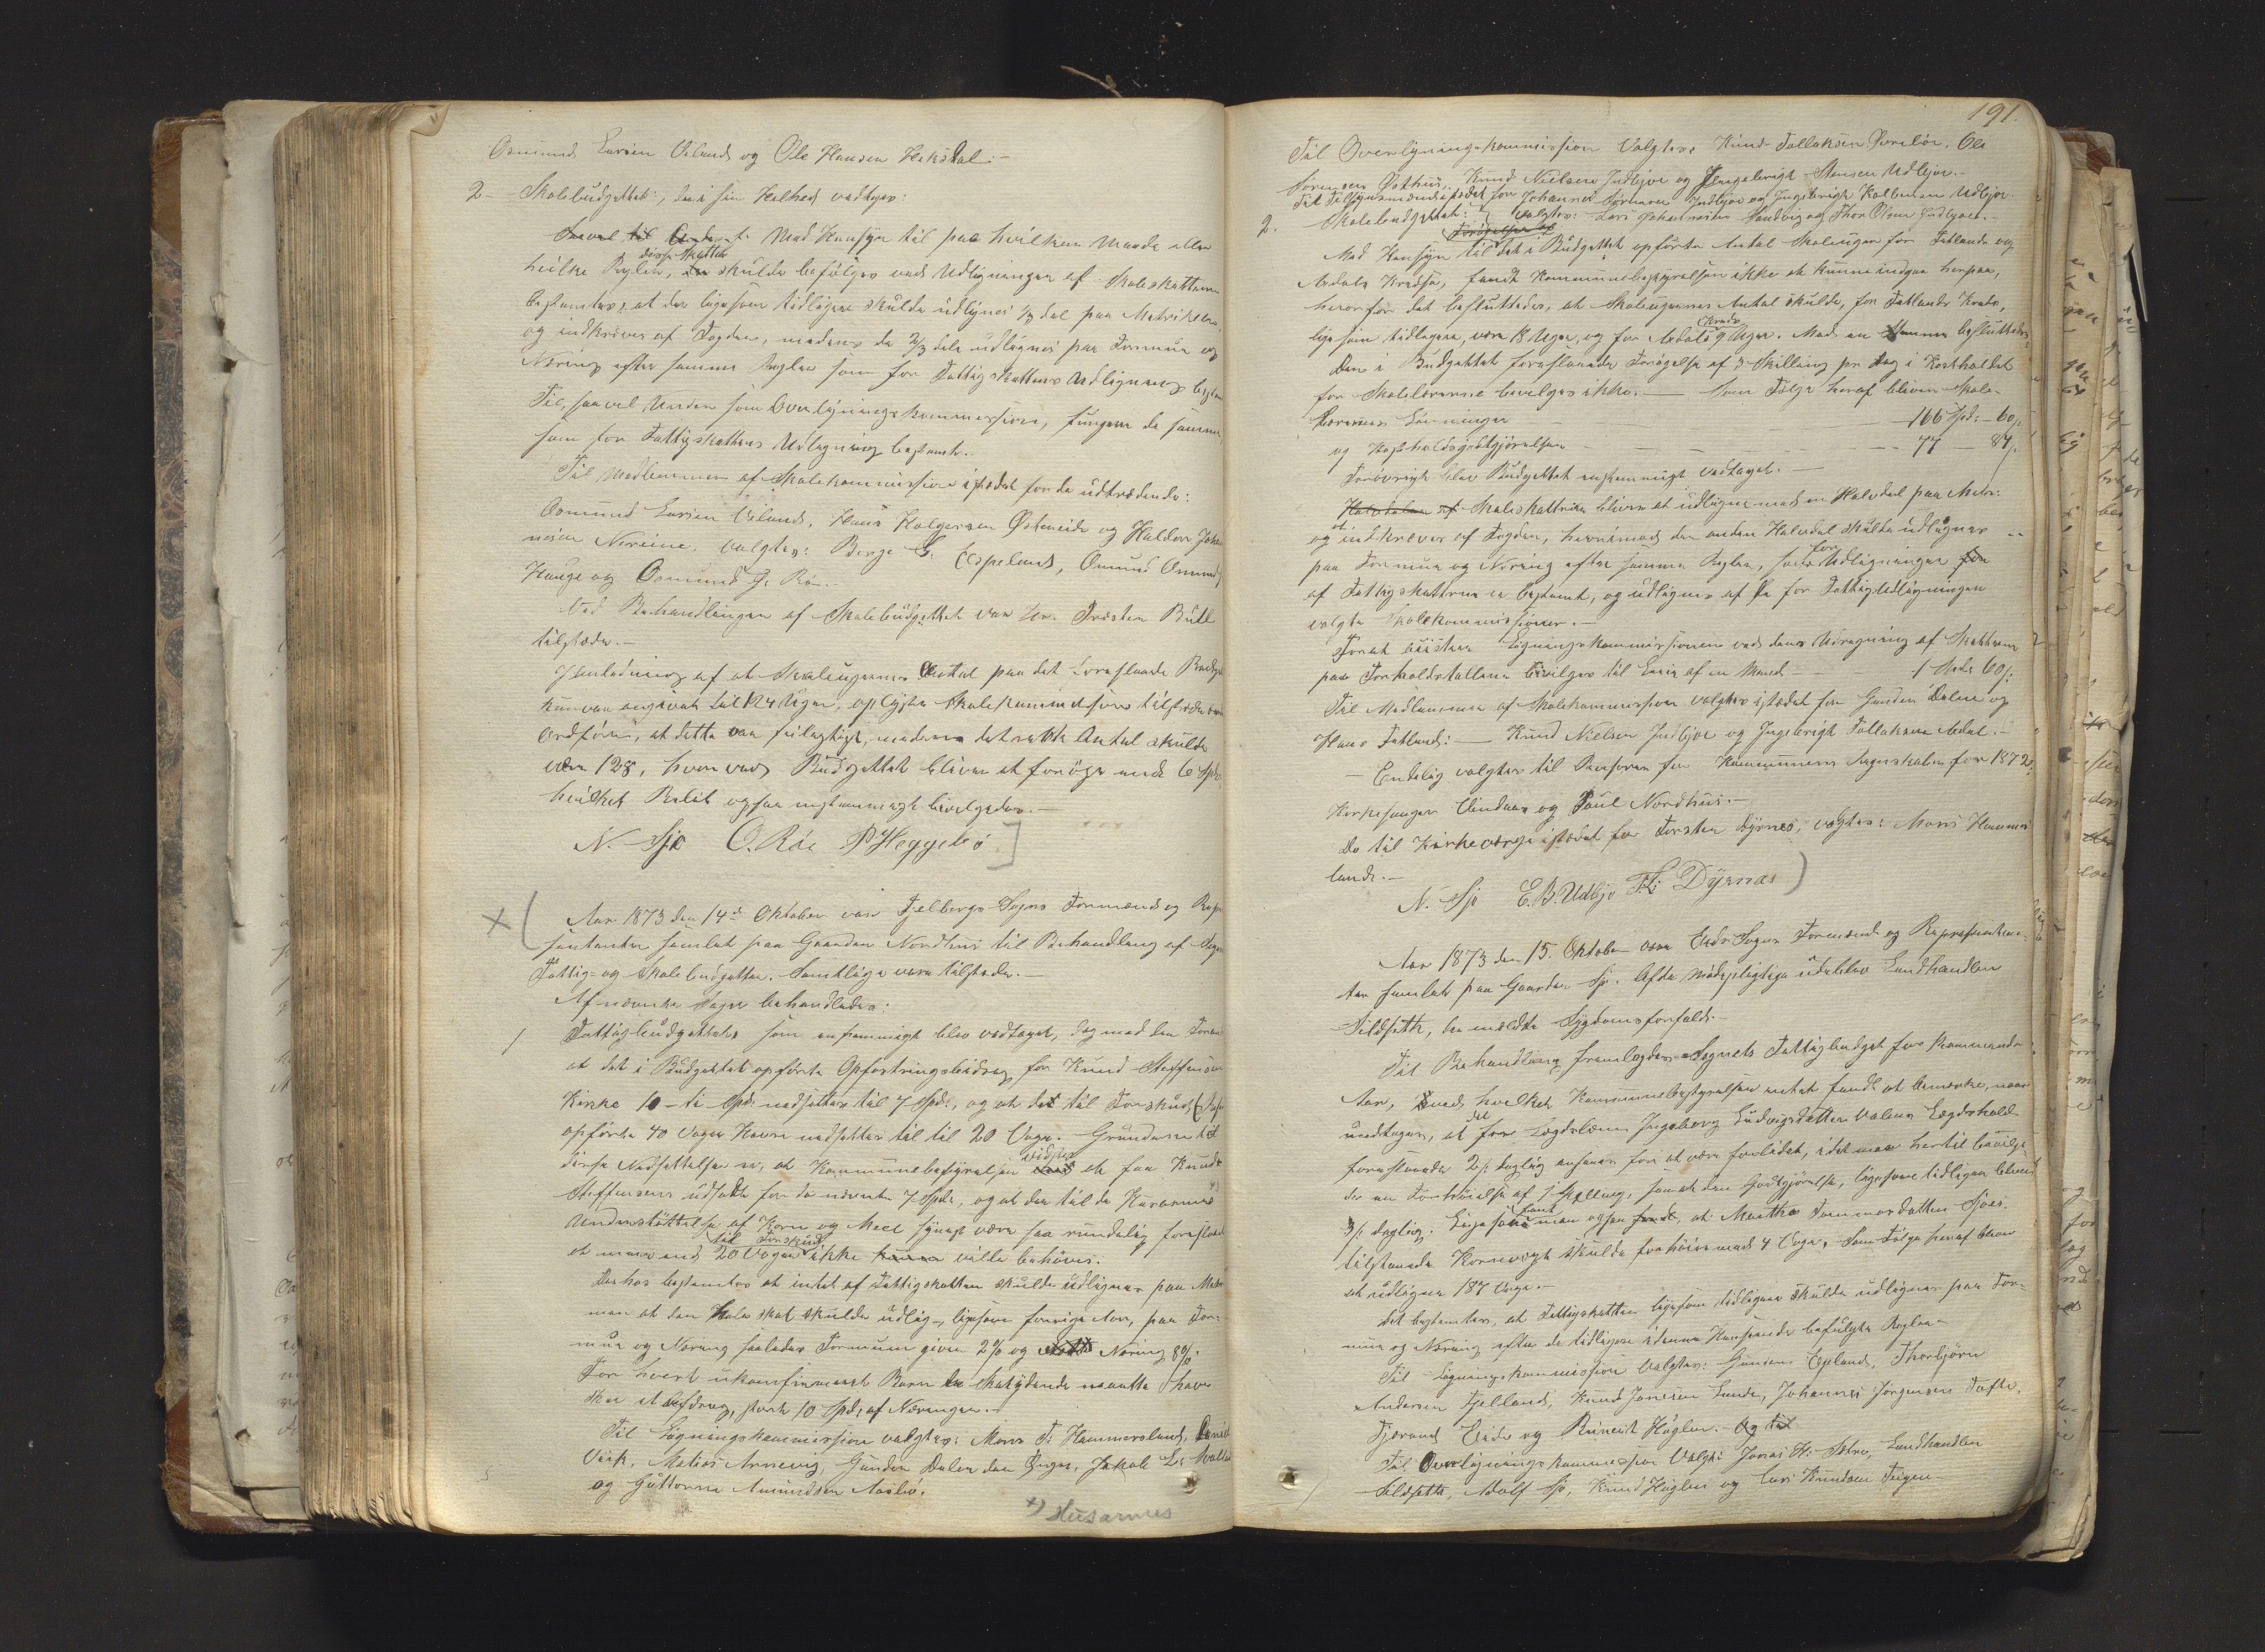 Osmund Larsen Eiland og Ole Hansen Hekstal.-
2- Skolebudgettet:, der i sin Helhed vedtoges:
Med Hensyn til paa hvilken Maade eller
hvilke Regler, disse Skatter skulde befølges ved Udligningen af Skoleskatten
bestemtes, at der ligesom tidligere skulde udlignes 1/3 del paa Matrikelen,
og indkræves af Fogden, medens de 2/3 dele udlignes paa Formue og
Næring efter samme Regler som for Fattigskattens Udligning bestemt
Til, saavel Under som Overligningskommission, fungere de samme,
som for Fattigskattens Udligning bestemt.
Til Medlemmer af Skolekommission istedet for de udtrædende:
Osmund Larsen Eiland, Hans Holgersen Østeneide og Haldor Johan
nesen Nereim, valgtes: Berge G. Espeland, Omund Omunds
Hauge og Osmund G. Røe.
Ved Behandlingen af Skolebudgettet var Hr. Præsten Bull
tilstede.-
I Anledning af at Skoleugernes Antal paa det foreslaaede Budget
kun var angivet til 124 Uger, oplyste Skolekommissionens tilstedeværende
Ordfører, at dette var feilagtigt, medens det rette Antal skulde
være 128, hvorved Budgettet bliver at forøge med 6 Spd.
hvilket Beløb ogsaa enstemmigt bevilgedes.-
N. Sjo O. Røe P Heggebø ]
x ( Aar 1873 den 14de Oktober var Fjelbergs Sogns Formænd og Repræ
sentanter samlet paa Gaarden Nordhus til Behandling af Sognets
Fattig- og Skolebudgetter. Samtlige vare tilstede.-
Af nævnte Sager behandledes:
1 Fattigbudgettet som enstemmigt blev vedtaget, dog med den Foran
at det i Budgettet opførte Opfostringsbidrag for Knud Steffensen
Kirke 10 - ti Spd. nedsættes til 7 Spd., og at det til Forskud
opførte 40 Voger Havre nedsættes til til 20 Voger. Grunden til
disse Nedsættelser er, at Kommunebestyrelsen vidste at faa Knud
Steffensen udsat for de nævnte 7 Spd., og at den til de Husarmes x)
Understøttelse af Korn og Meel synes være saa rundelig foreslaaet
at man med 20 Voger til Forskud ikke vilde behøves.
Derhos bestemtes at intet af Fattigskatten skulde udlignes paa Matr
men at den hele skat skulde udlig-, ligesom forrige Aar, paa For-
mue og Næring saaledes Formuen given 2% og Næring 8%.
For hvert ukonfirmeret Barn den Skatydende maatte have
skee et Afdrag, stort 10 Spd, af Næringen.-
Til Ligningskommission valgtes: Mons T. Hammersland, Daniel
Vik, Matias Arnevig, Gunder Dalen den Yngre, Jakob L.
og Guttorm Amundsen Naalso.
x) Husarmes
191.
Til Overligningskommission valgtes Knud Tollaksen Øvrebøe, Ole
Sørensen Østhus, Knud Nielsen Indbjoe og Ingebrigt Stensen Udbjoe.-
Til Tilsynsmænd istedet for Johannes Sørensen Indbjoe og Ingebrigt Kolbensen Udbjoe
2. Skolebudgettet: valgtes: Lars Johannesen Sandvig og Thor Olsen Indbjoe.-
Med Hensyn til det i Budgettet opførte Antal Skoleuger for Fatlands og
Aedals Kredse, fandt Kommunebestyrelsen ikke at kunne indgaa herpaa,
hvorfor det besluttedes, at Skoleugernes Antal skulde, for Fatlands Kreds,
ligesom tidligere, være 18 Uger, og for Aedals Kreds 9 Uger. Med en Stemme besluttedes
Den i Budgettet foreslaaede Forøgelse af 3 Skilling pr Dag i Kostholdet
for Skolelærerne bevilges ikke.- Som Følge heraf bliver Skole-
lærernes Lønninger - - - 166 Spd. - 60 s.
og Kostholdsgodtgjørelsen - - - 77 - 84 s.
Forøvrigt blev Budgettet enstemmigt vedtaget.-
Skoleskatten bliver at udligne med en Halvdel paa Matr:
og at indkræves af Fogden, hvorimod den anden Halvdel skulde udlignes
paa Formue og Næring efter samme Regler, som for Udligningen
af Fattigskatten er bestemt, og udlignes af de for Fattigudligningen
valgte Skolekommissioner.-
For at assistere Ligningskommissionen ved dens Udregning af Skatten
paa Forholdstallene bevilges til Leie af en Mand - - 1 Spd. 60 s:
Til Medlemmer af Skolekommission valgtes istedet for Gunder Dalen og
Hans Fatland: - Knud Nielsen Indbjoe og Ingebrigt Tollaksen Aedal.-
- Endelig valgtes til Revisorer for Kommunens Regnskaber for 1872:
Kirkesanger Vindenes og Poul Nordhus.-
Do til Kirkeværge istedet for Torsten Dyrnes, valgtes: Mons Hammers
land.-
N. Sjo E. B. Udbjo T. L. Dyrnes )
Aar 1873 den 15. Oktober var Eids Sogns Formænd og Repræsentan-
ter samlet paa Gaarden Sjo. Af de Mødepligtige udeblev Landhandler
Sildseth, der meldte Sygdomsforfald.-
Til Behandling fremlagdes Sognets Fattigbudget for kommende
Aar, ved hvilket Kommunebestyrelsen intet fandt at bemærke, naar
undtages, at det for Lægdslem Ingeborg Ludvigsdatter Valens Lægdshold
foreslaaede 2 s. daglig ansees for at være forlidet, idet man hertil bevilge-
de en Forhøielse af 1 Skilling, saa at den Godtgjørelse, ligesom tidligere bliver
3 s. daglig. Ligesom man ogsaa fandt, at Martha Tommasdatter Sjoes
tilstaaede Kornvogt skulde forhøies med 4 Voger, Som Følge heraf bliver
at udligne 187 Voger.-
Det bestemtes, at Fattigskatten ligesom tidligere skulde udlignes paa For-
mue og Næring efter de tidligere i denne Henseende befulgte Regler-
Til Ligningskommission valgtes: Gunder Opland, Thorbjørn
Andersen Fjelland, Knud Jansen Lunde, Johannes Jørgensen Tofte,
Tjerand Eide og Reinert Høglen. -
Til Overligningskommission valgtes Jonas H. Sætre, Landhandler
Sildseth, Adolf Sjo, Knud Høglen og Lars Knudsen Teigen-